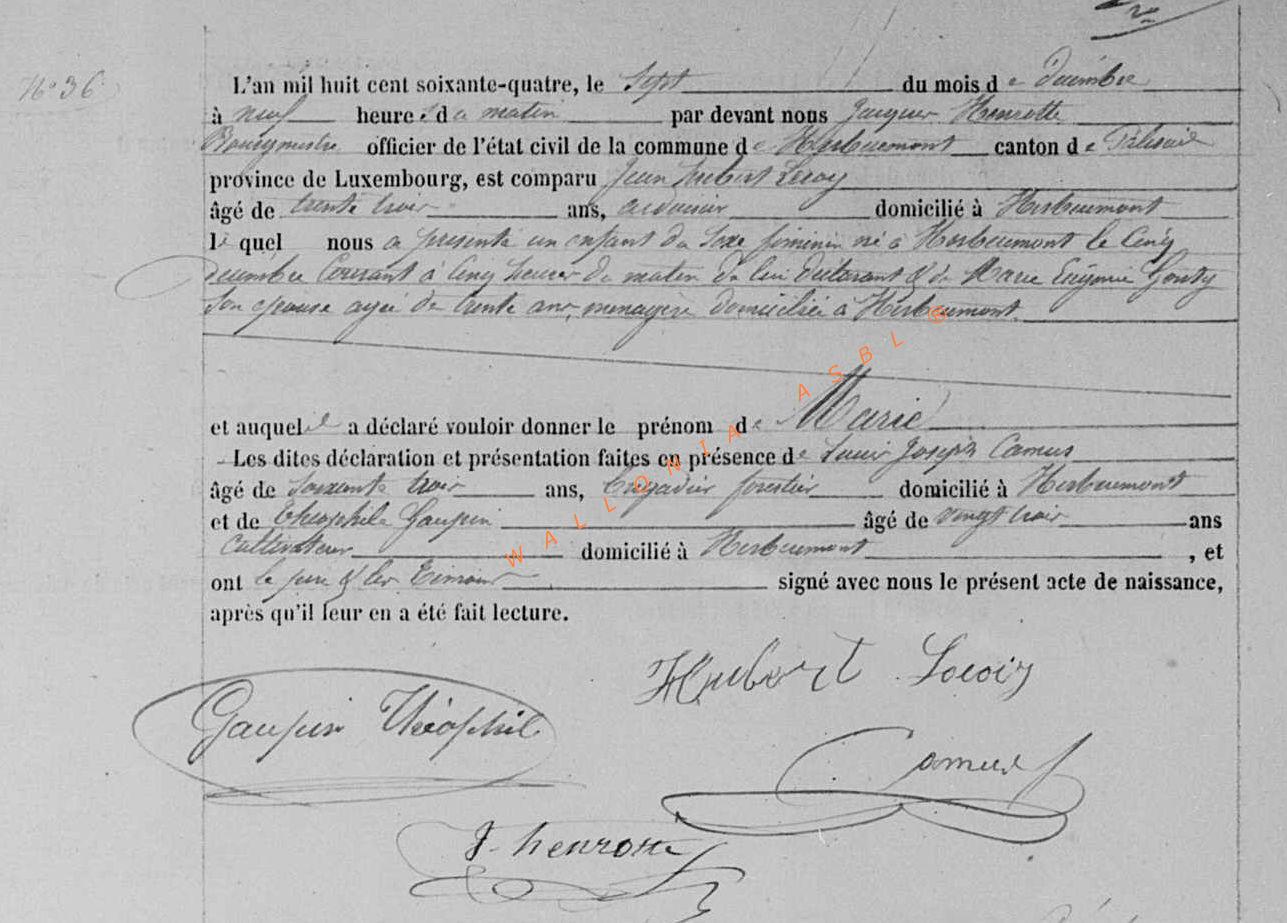 N° 36
L'an mil huit cent soixante-quatre, le Sept du mois de decembre
à neuf heures du matin par devant nous Jacques Henrotte
Bourgmestre officier de l'état civil de la commune de Herbeumont canton de Paliseul
province de Luxembourg, est comparu Jean hubert Lecoy
âgé de trente trois ans, ardoisier domicilié à Herbeumont
le quel nous a presenté un enfant du Sexe feminin né à Herbeumont le Cinq
decembre Courant à Cinq heures du matin de lui declarant & de Marie Eugénie
Son epouse agée de trente ans, menagère domiciliée à Herbeumont.
et auquel il a déclaré vouloir donner le prénom de Marie
Les dites déclaration et présentation faites en présence de Louis Joseph Camus
âgé de Soixante trois ans, brigadier forestier domicilié à Herbeumont
et de théophile Gaupin âgé de vingt trois ans
Cultivateur domicilié à Herbeumont, et
ont le pere & les temoins signé avec nous le présent acte de naissance,
après qu'il leur en a été fait lecture.
Hubert
Gaupin Théophil
Camus
J. henrotte
WALLONIA ASBL ®